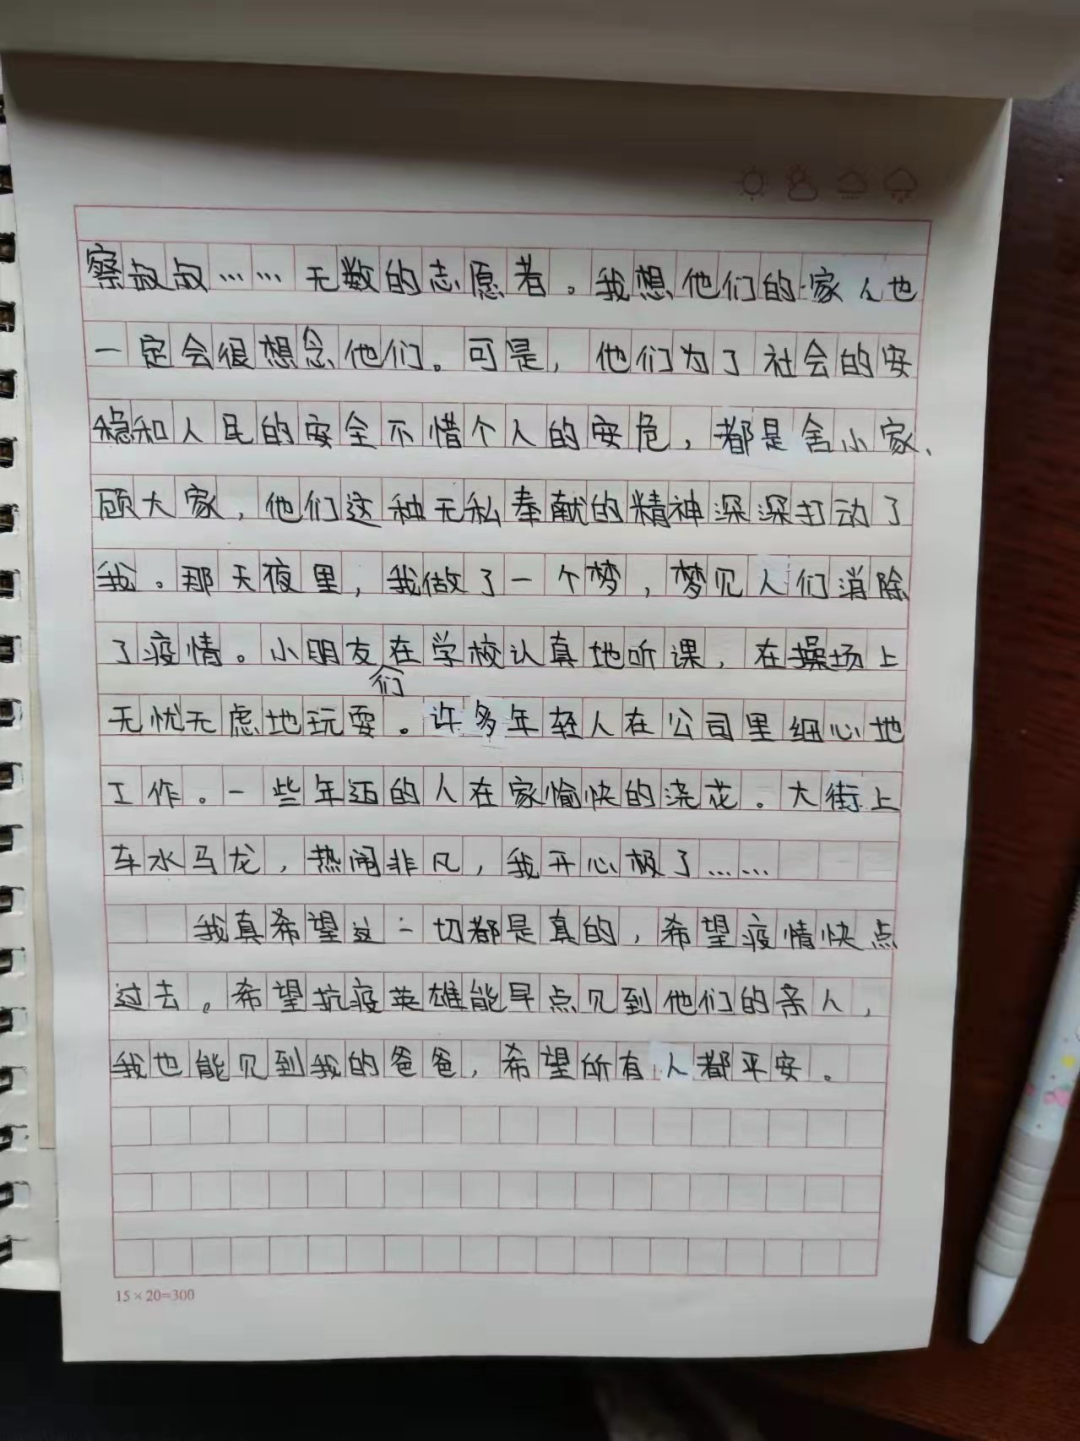 察叔叔……无数的志愿者。我想他们的家人也
一定会很想念他们。可是，他们为了社会的安
稳和人民的安全不惜个人的安危，都是舍小家、
顾大家，他们这种无私奉献的精神深深打动了
我。那天夜里，我做了一个梦，梦见人们消除
了疫情。小朋友们在学校认真地听课，在操场上
无忧无虑地玩耍。许多年轻人在公司里细心地
工作。一些年迈的人在家愉快的浇花。大街上
车水马龙，热闹非凡，我开心极了……
我真希望这一切都是真的，希望疫情快点
过去。希望抗疫英雄能早点见到他们的亲人，
我也能见到我的爸爸，希望所有人都平安。
15×20=300